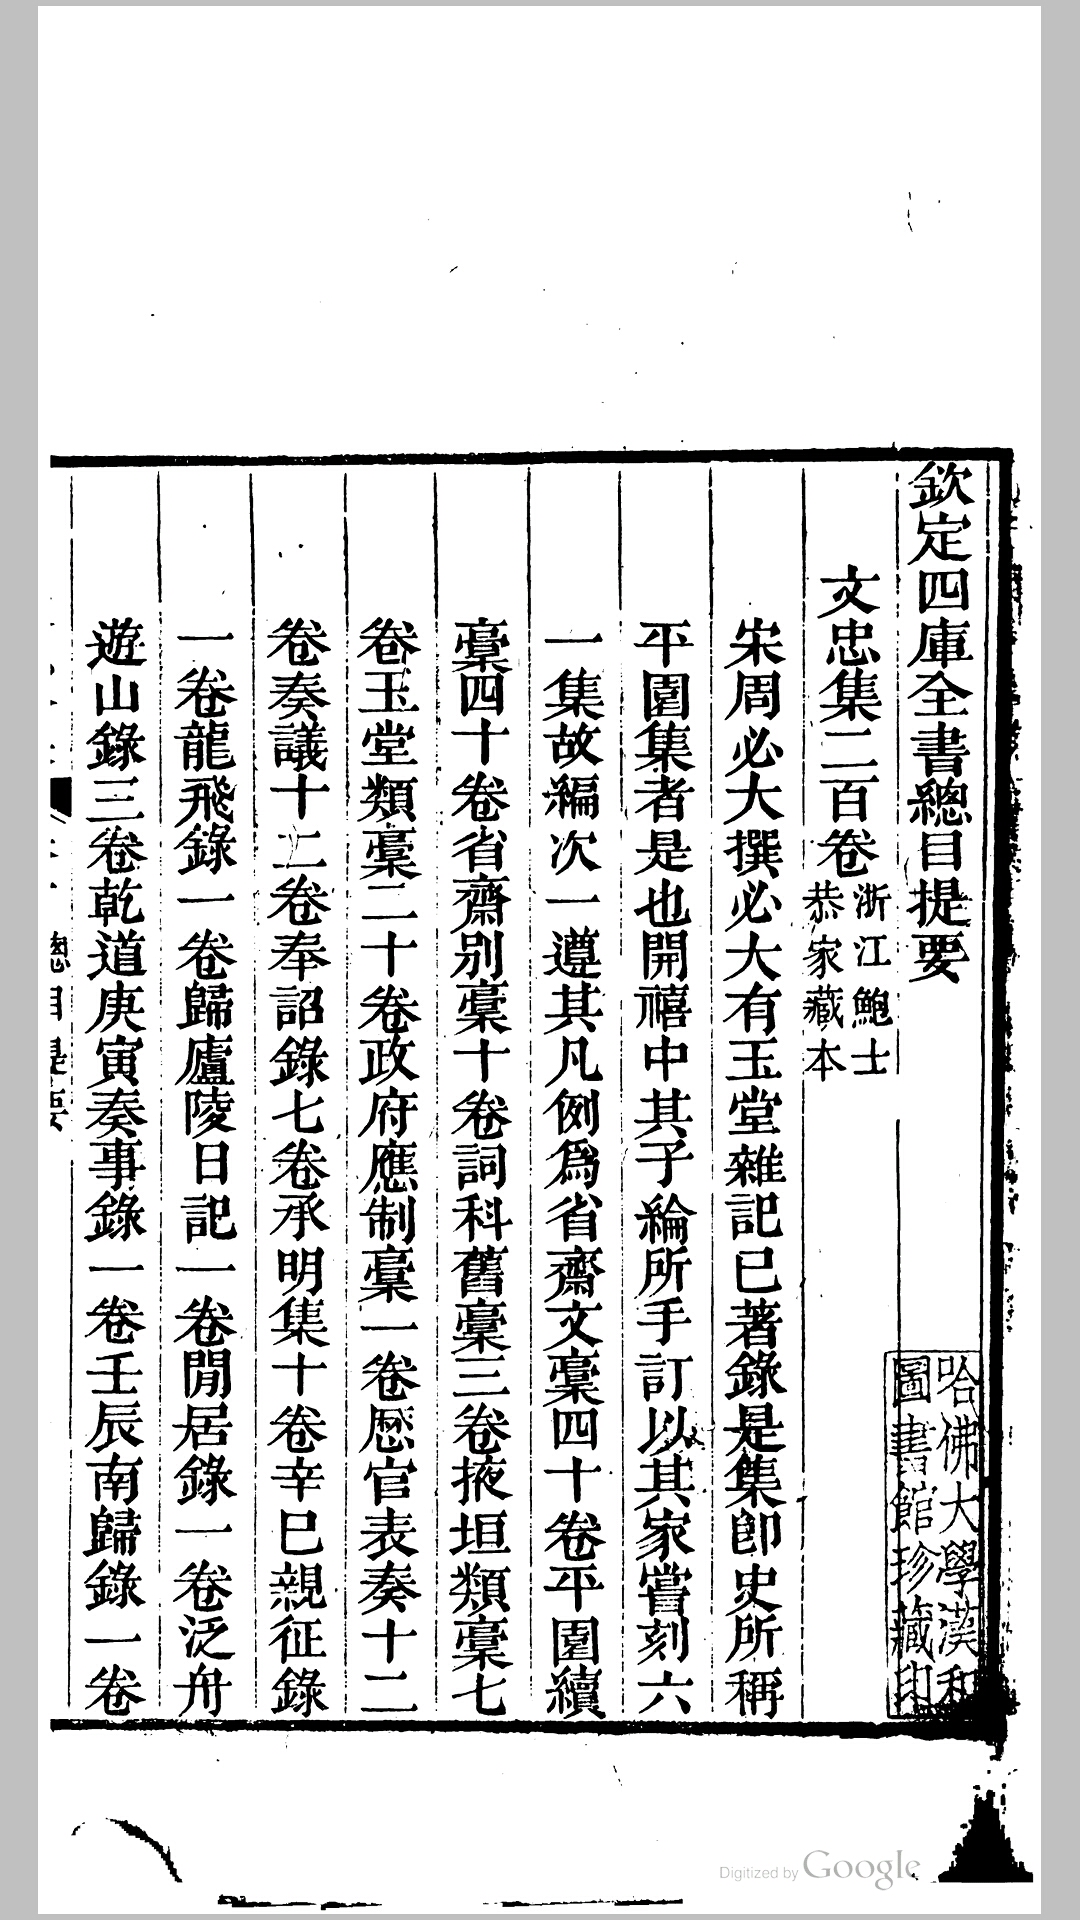 欽定四庫全書總目提要
文忠集二百卷浙江鮑士恭家藏本
宋周必大撰必大有玉堂雜記已著錄是集卽史所稱
平園集者是也開禧中其子綸所手訂以其家嘗刻六
一集故編次一遵其凡例爲省齋文稾四十卷平園續
稾四十卷省齋別稾十卷詞科舊稾三卷掖垣類稾七
卷玉堂類稾二十卷政府應制稾一卷歷官表奏十二
卷奏議十二卷奉詔錄七卷承明集十卷辛巳親征錄
一卷龍飛錄一卷歸廬陵日記一卷閒居錄一卷泛舟
遊山錄三卷乾道庚寅奏事錄一卷壬辰南歸錄一卷
總目提要
哈佛大學漢和
圖書館珍藏印
Digitized by Google